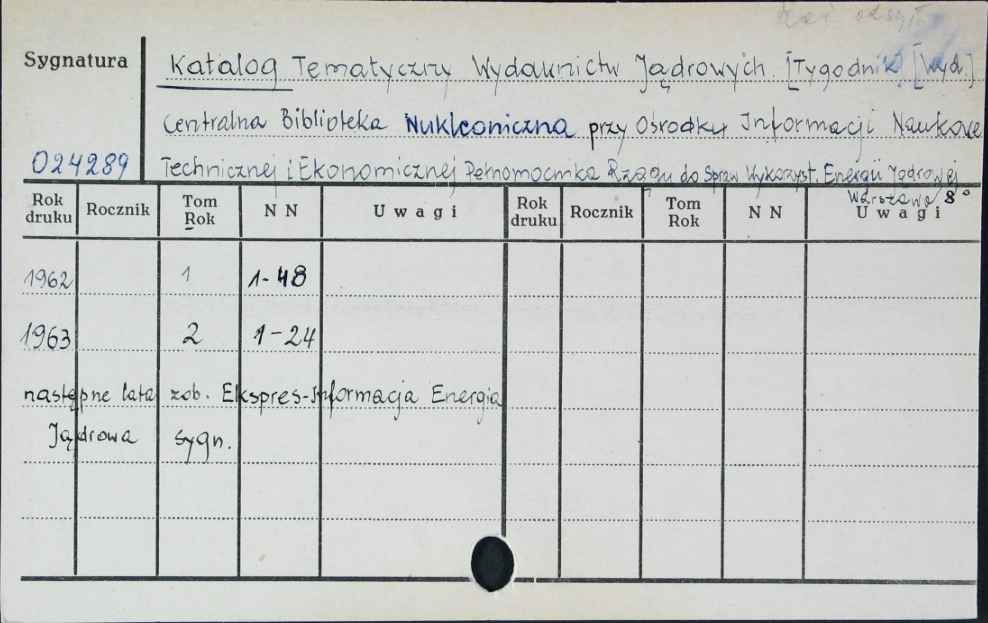 Sygnatura
Katalog Tematyczny Wydawnictw Jądrowych. [Tygodnik] [Wyd.]
Centralna Biblioteka Nukleoniczna przy Ośrodku Informacji Naukowe
024289
Technicznej i Ekonomicznej Pełnomocnika Rządu do Spraw Wykorzyst. Energii Jądrowej
Warszawa 8°
Rok druku Rocznik Tom Rok N N Uwagi Rok druku Rocznik Tom Rok N N Uwagi
1962 1 1-48
1963 2 1-24
następne lata zob. Ekspres-Informacja Energia
Jądrowa sygn.